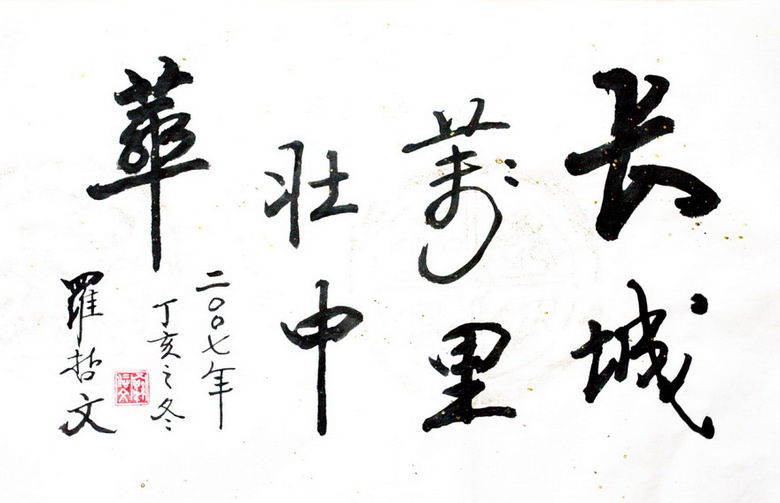 长城
萬里
壮中
華
二〇〇七年
丁亥之冬
羅哲文